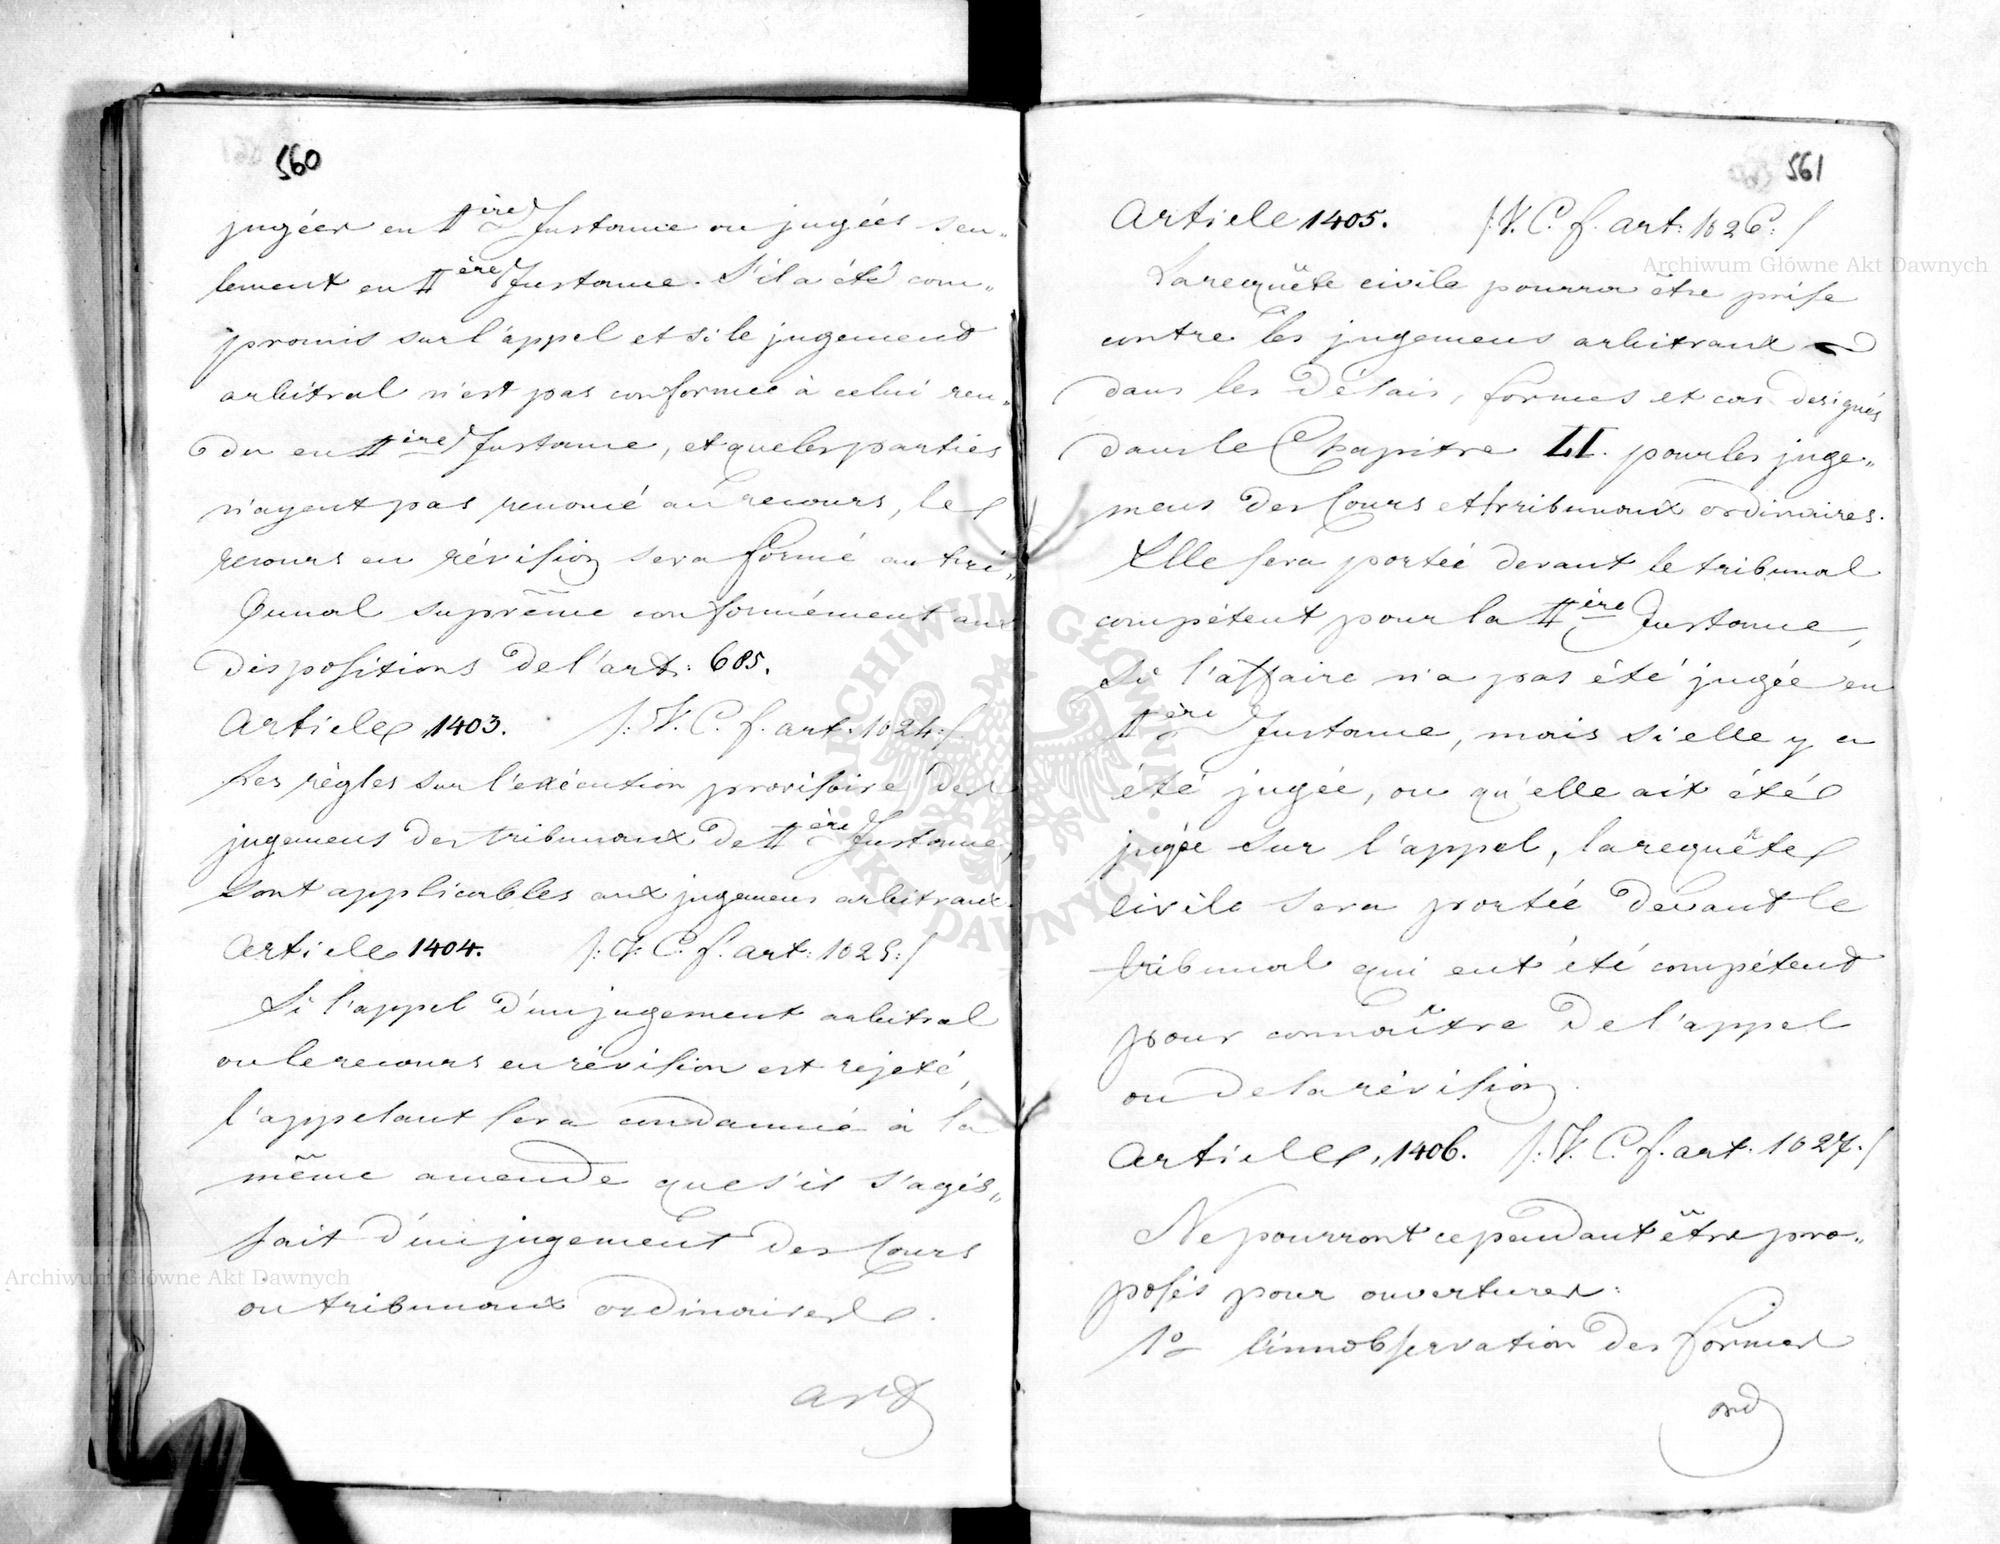 560
jugées en 1ère Instance ou jugées seu„
lement en 1ère Instance. S'il a été com„
promis sur l'appel et si le jugement
arbitral n'est pas conforme à celui ren„
du en 1ère Instance, et que les parties
n'ayent pas renoncé au recours, le
recours en révision sera formé au tri„
bunal suprême conformément aux
dispositions de l'art: 685.
Article 1403. /: V. C. f. art. 1024:/
Les règles sur l'exécution provisoire des
jugemens des tribunaux de 1ère Instance,
sont applicables aux jugemens arbitraux.
Article 1404. /: V. C. f. art: 1025:/
Si l'appel d'un jugement arbitral
ou le recours en révision est rejeté,
l'appelant sera condamné à la
même amende que s'il s'agis„
sait d'un jugement des Cours
ou tribunaux ordinaires.
Art
561
Article 1405. /: V. C. f. art: 1026:/
La requête civile pourra être prise
contre les jugemens arbitraux
dans les délais, formes et cas designés
dans le Chapitre II. pour les juge„
mens des Cours et tribunaux ordinaires.
Elle sera portée devant le tribunal
compétent pour la 1ère Instance,
Si l'affaire n'a pas été jugée en
1ère Instance, mais si elle y a
été jugée, ou qu'elle ait été
jugée sur l'appel, la requête
civile sera portée devant le
tribunal qui eut été compétent
pour connaître de l'appel
ou de la révision.
Article, 1406. /: V. C. f. art. 1027:/
Ne pourront cependant être pro„
posés pour ouvertures:
1º l'innobservation des formes
ord
Archiwum Główne Akt Dawnych
Archiwum Główne Akt Dawnych
ARCHIWUM GŁÓWNE AKT DAWNYCH